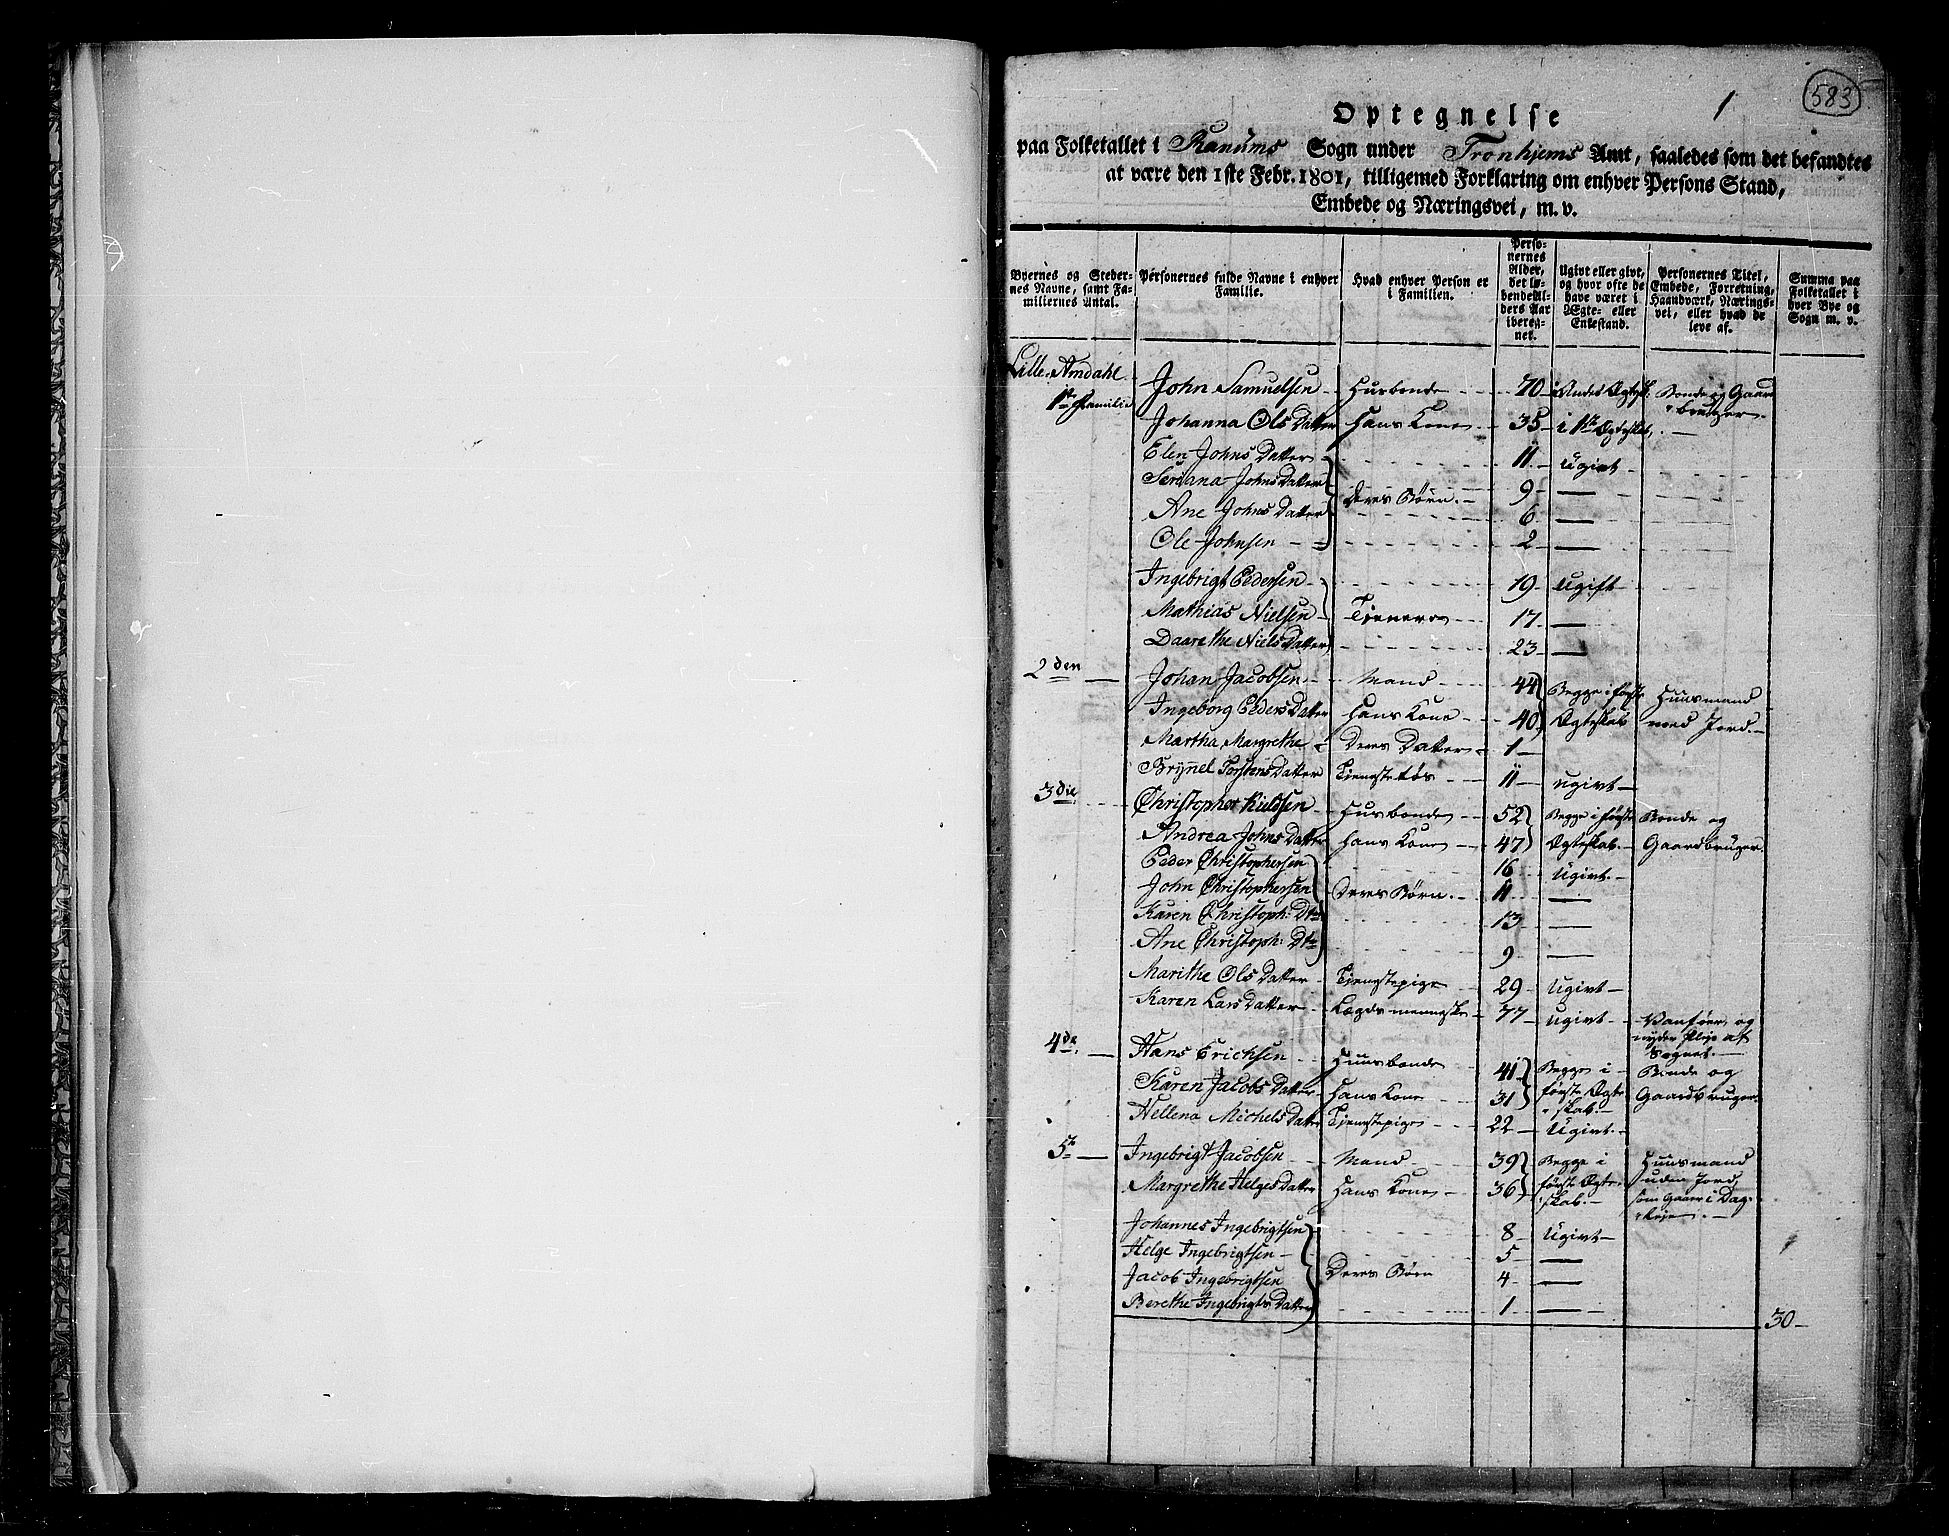 583
1
Optegnelse
paa Folketallet i Ranums Sogn under Tronhjems Amt, saaledes som det befandtes
at være den 1ste Febr. 1801, tilligemed Forklaring om enhver Persons Stand,
Embede og Næringsvei, m. v.
Byernes og Stedernes Navne, samt Familiernes Antal. Personernes fulde Navne i enhver Familie. Hvad enhver Person er i Familien. Personernes Alder, det løbendeAlders Aar iberegnet. Ugivt eller givt, og hvor ofte de have været i Ægte- eller Enkestand. Personernes Titel, Embede, Forretning, Haandværk, Næringsvei, eller hvad de leve af. Summa paa Folketallet i hver Bye og Sogn m. v.
Lille Amdahl
1te Familie John Samuelsen Husbonde 70 Andet Ægtesk: Bonde og Gaardbruger
Johanna Ols Datter Hans Kone 35 i 1te Ægteskab
Elen Johns Datter 11 Ugivt
Johns Datter 9 —
Ane Johns Datter Deres Børn 6 —
Ole Johnsen 2 —
Ingebrigt Pedersen 19 Ugift
Mathias Nielsen Tjenere 17 —
Daarethe Niels Datter 23 —
2den Johan Jacobsen Mand 44 Begge i første Huusmand
Ingeborg Peders Datter Hans Kone 40 Ægteskab med Jord
Martha Margrethe Deres Datter 1
Brÿnel Torstens Datter Tjenestetøs 11 ugivt
3die Christopher Husbonde 52 Begge i første Bonde og
Andrea Johns Datter Hans Kone 47 Ægteskab Gaardbruger
Peder Christophersen 16 Ugivt
John Christophersen Deres Børn 11 —
Karen Christoph: Dtr 13 —
Ane Christoph: Dtr 9 —
Marithe Ols Datter Tjenestepige 29 Ugivt
Karen Lars Datter Lægdsmenneske 77 ugivt Vanføer, og nyder Pleje af Sognet
4de Hans Erichsen Huusbonde 41 Begge i Bonde og
Karen Jacobs Datter Hans Kone 31 første Ægteskab Gaardbruger
Hellena Michels Datter Tjenestepige 22 Ugivt
5te Ingebrigt Jacobsen Mand 39 Begge i Huusmand
Margrethe Helges Datter Hans Kone 36 første Ægteskab uden Jord som gaaer i Dagleje
Johannes Ingebrigtsen 8 Ugivt
Helge Ingebrigtsen 5 —
Jacob Ingebrigtsen Deres Børn 4 —
Berethe Ingebrigts Datter 1 —
30